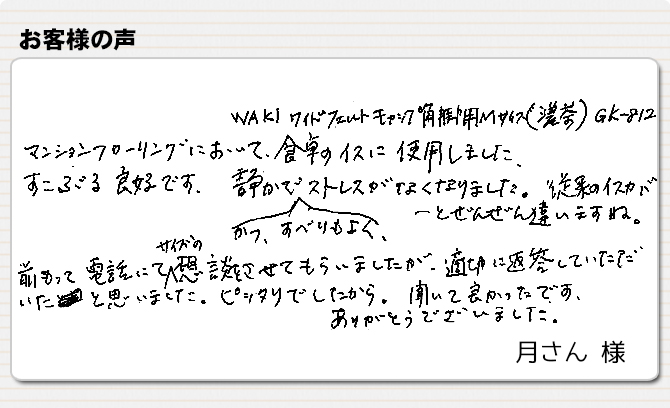 お客様の声
WAKI ワイドフェルトキャップ 角脚用Mサイズ(濃茶) GK-812
マンションフローリングにおいて、食卓のイスに使用しました。
すこぶる良好です。静かでストレスがなくなりました。従来のイスカバ
かつ、すべりもよく、
ーとぜんぜん違いますね。
サイズの
前もって電話にて想談をさせてもらいましたが、適切に返答していただ
いたと思いました。ピッタリでしたから。聞いて良かったです、
ありがとうございました。
月さん 様